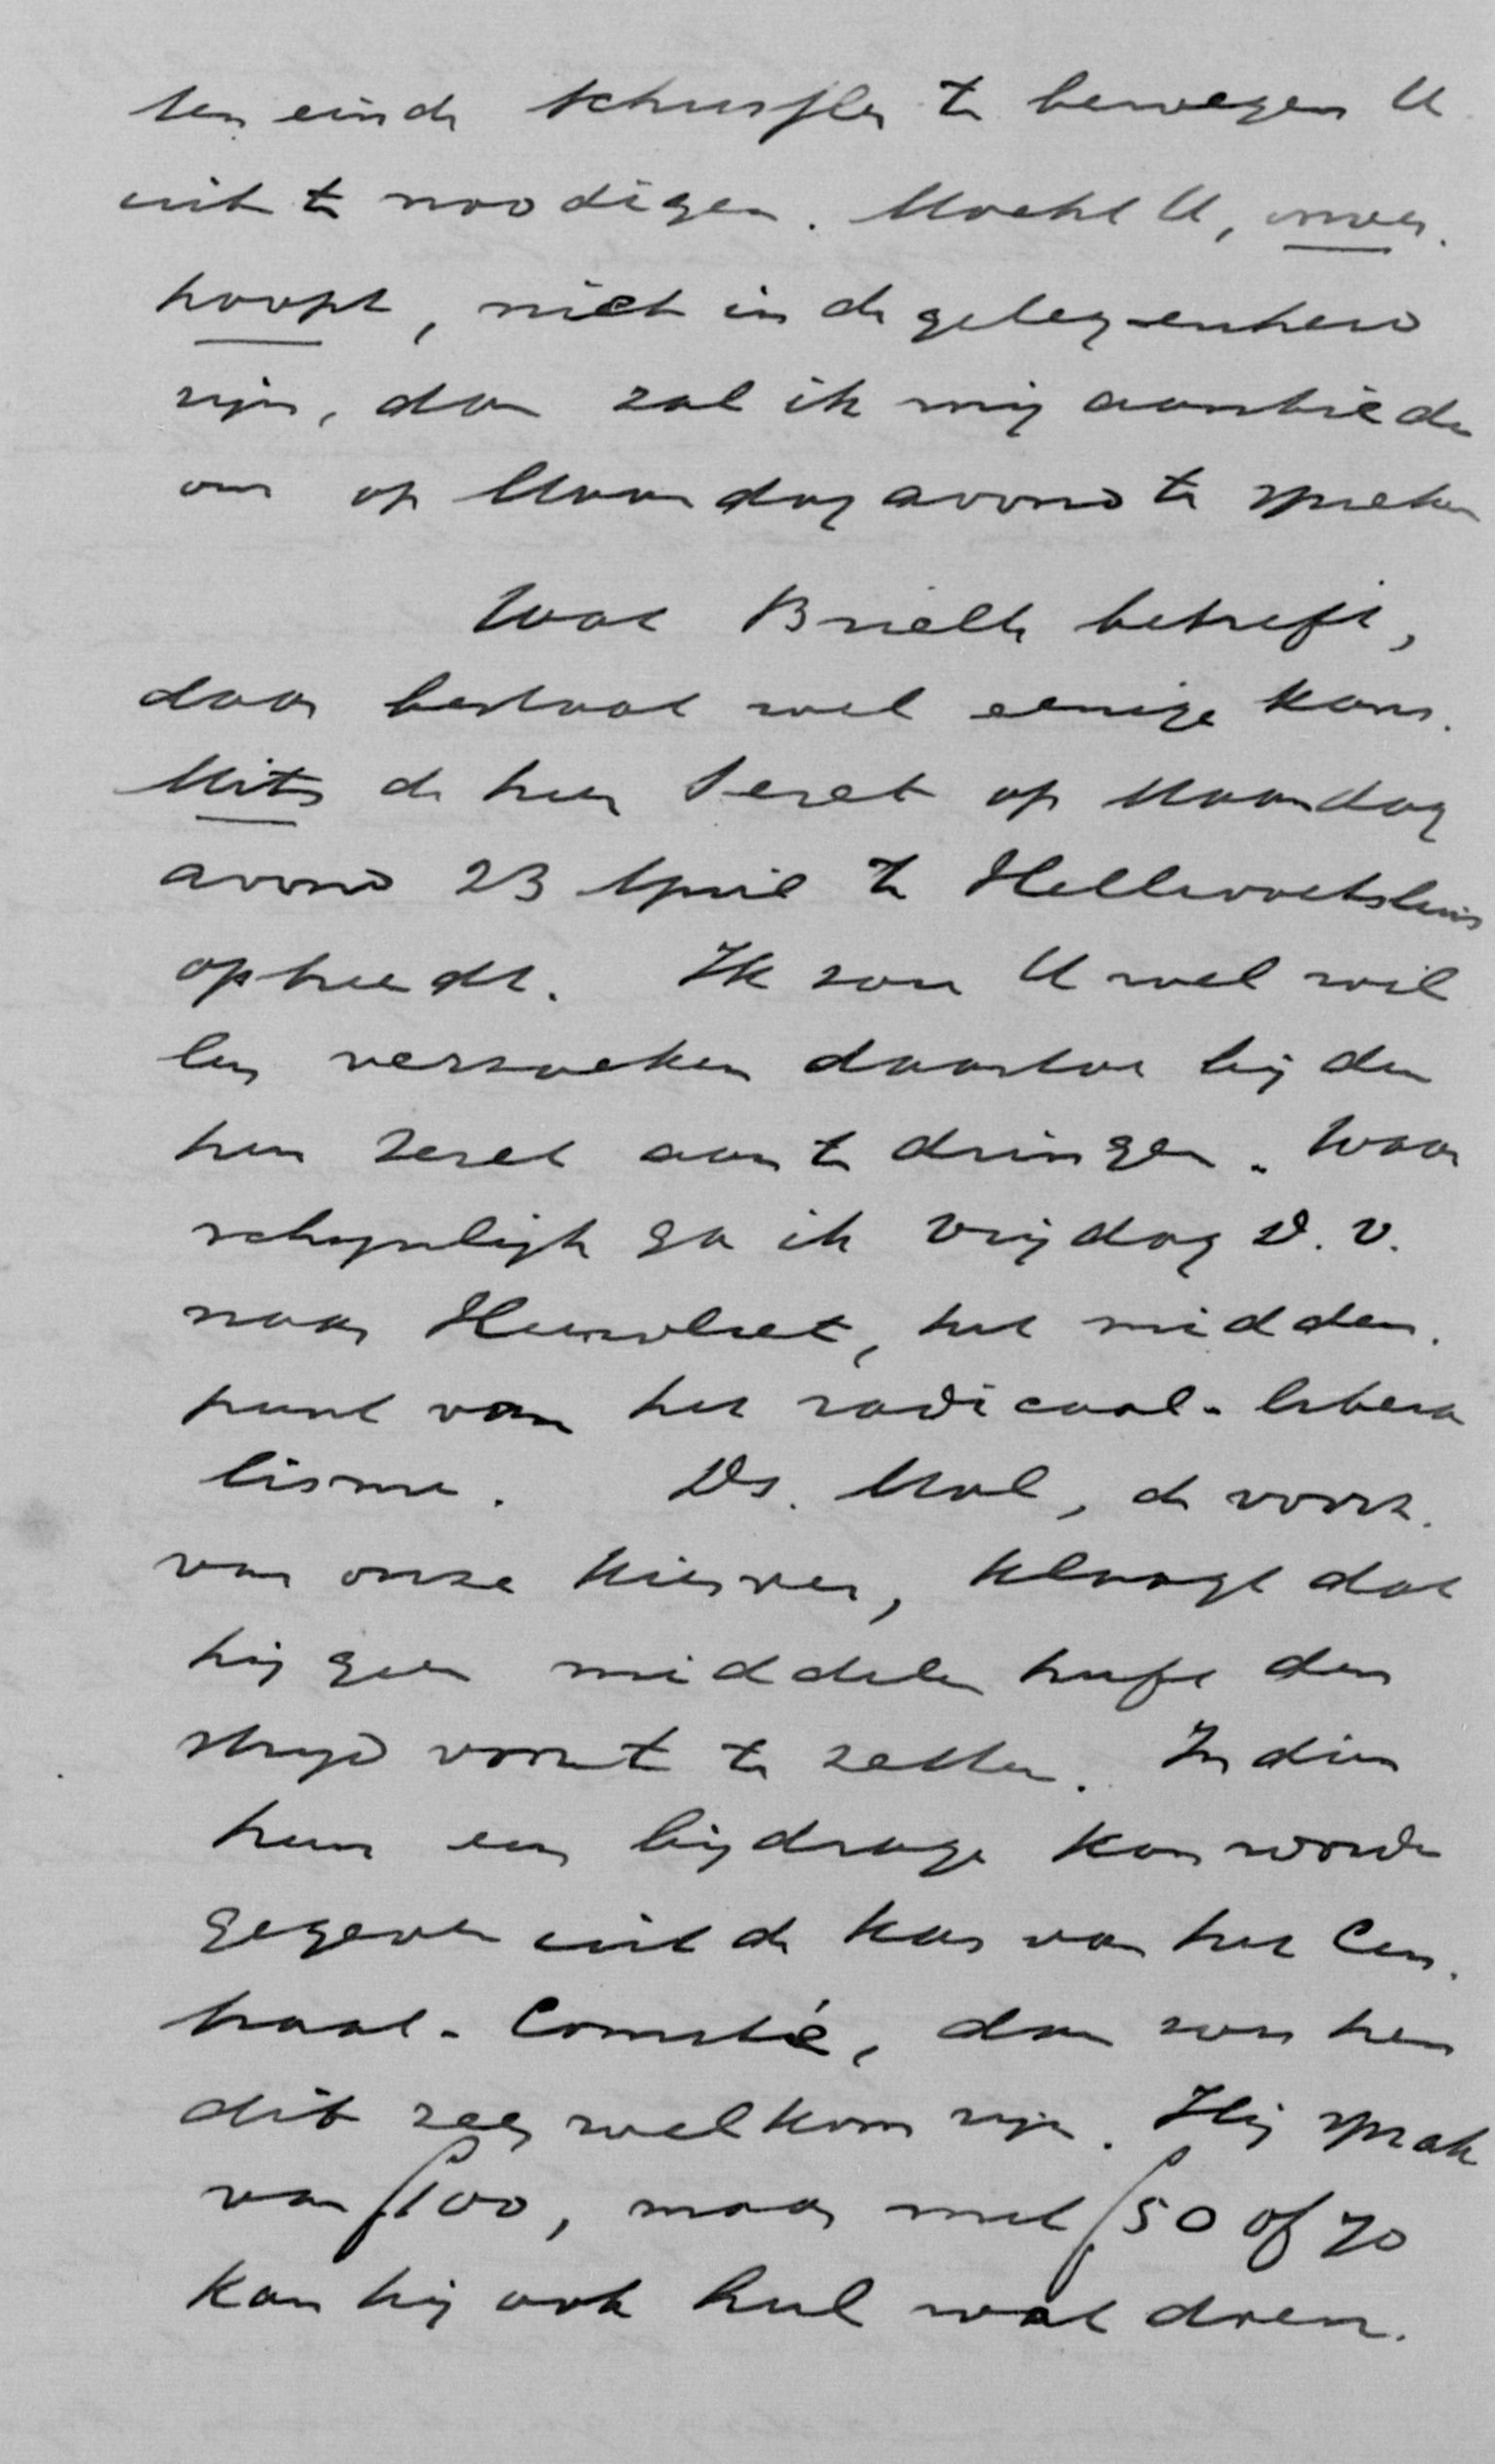 ten einde schriftelijk te bewegen U
uit te noodigen. Mocht U, onver-
hoopt, niet in de gelegenheid
zijn, dan zal ik mij aanbieden
om op Maandagavond te spreken
Wat Brielle betreft,
daar bestaat wel eenige kans.
Mits de heer Seret op Maandag
avond 23 April te Hellevoetsluis
optreedt. Ik zou U wel wil
len verzoeken daartoe bij den
heer Seret aan te dringen. Waar
schijnlijk ga ik Vrijdag D.V.
naar Heenvliet, het midden-
punt van het radicaal-libera
lisme. Ds. Mol, de voorz.
van onze Kiesver, klaagt dat
hij geen middelen heeft den
strijd voort te zetten. Indien
hem een bijdrage kon worden
gegeven uit de kas van het Cen-
traal-Comité, dan zou hem
dit zeer welkom zijn. Hij sprak
van f100, maar met f50 of 70
kan hij ook heel wat doen.